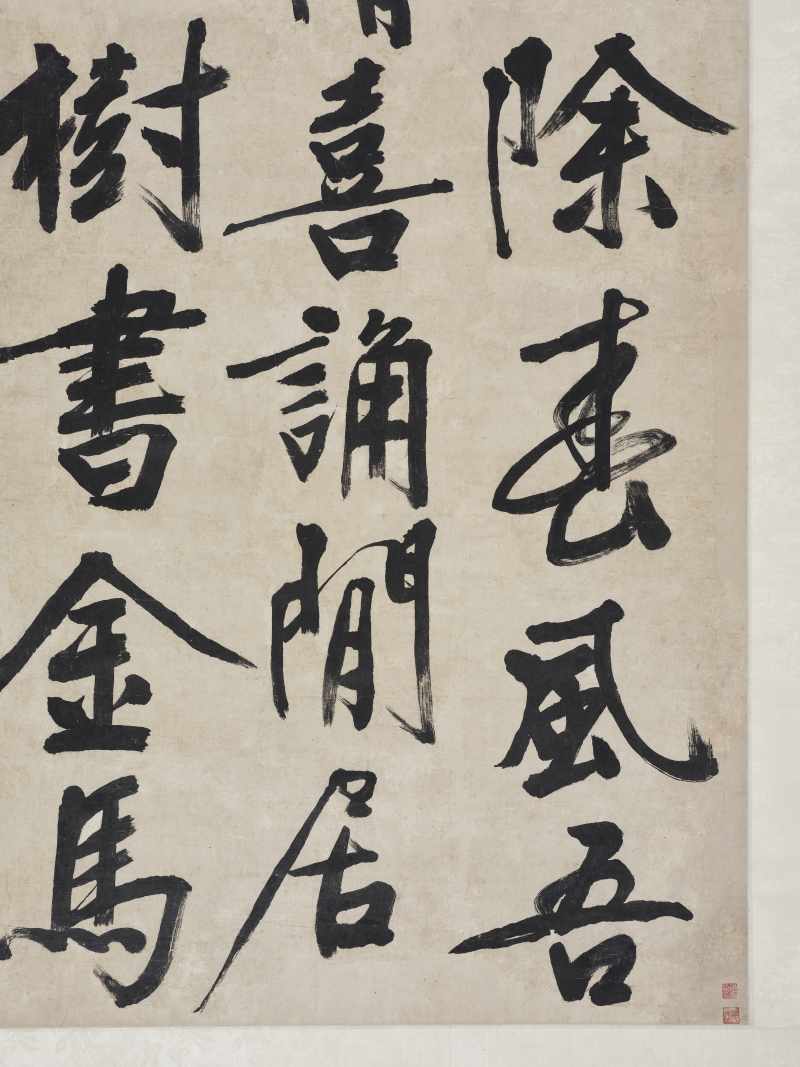 除春風吾
喜誦閒居
樹書金馬